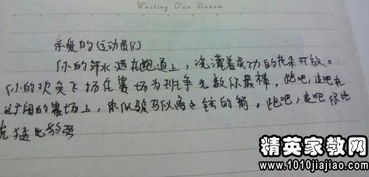 Writing Our Dream
亲爱的运动员们
你的汗水洒在跑道上，浇灌着成功的花朵开放。
你的欢笑飞扬在赛场为班争光数你最棒，跑吧，追吧在
这广阔的赛场上，你似骏马似离弦的箭，跑吧，追吧你比
虎猛比豹强
精英家教网
www.1010jiajiao.com